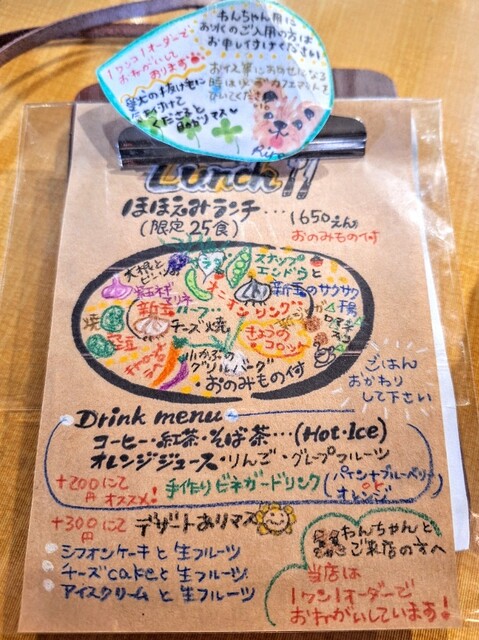 わんちゃん用に
お水のご入用の方は
お申し付けください
1ワンコ1オーダーで
おねがいして
おります
愛犬の抜け毛に
気を付けて
くださると
助かリマス
お椅子におすわせになる
時は必ずカフェマットを
ひいてください
Lunch
ほほえみランチ…1650えん
(限定25食) おのみもの付
大根と
ビーンズ
サラダ
スナップ
エンドウと
新玉のサクサク
オニオンリング
紫玉ネギ
マリネ
新玉
ハーブ
チーズ焼
小かぶの
グリルバーグ
・おのみもの付
ごはん
おかわり
して下さい
Drink menu
コーヒー・紅茶・そば茶…(Hot・Ice)
オレンジジュース・りんご・グレープフルーツ
+200円にて
オススメ!
手作りビネガードリンク(パイン+ブルーベリー
オレンジ
+300円にて
デザートありマス
シフォンケーキと生フルーツ
チーズcakeと生フルーツ
アイスクリームと生フルーツ
わんちゃんと
ご来店の方へ
当店は
1ワン1オーダーで
おねがいしています!